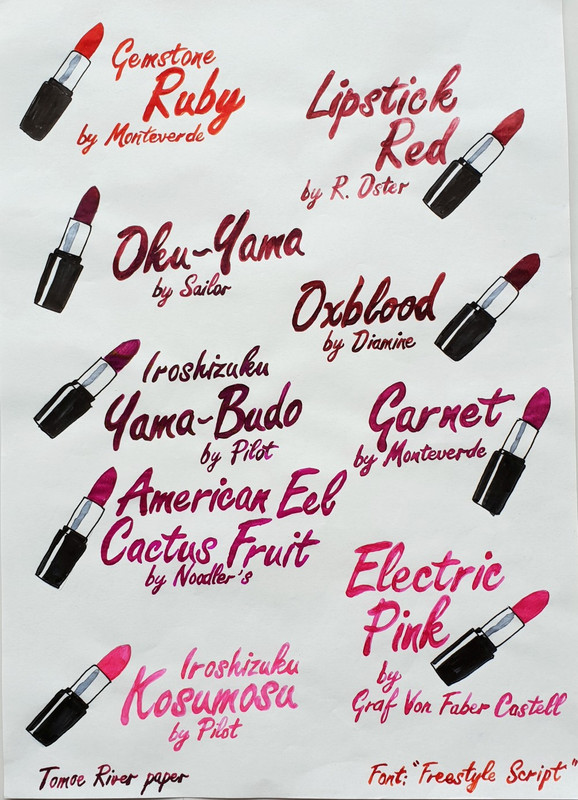 Gemstone
Ruby
by Monteverde
Lipstick
Red
by R. Oster
Oku-Yama
by Sailor
Oxblood
by Diamine
Iroshizuku
Yama-Budo
by Pilot
Garnet
by Monteverde
American Eel
Cactus Fruit
by Noodler's
Electric
Pink
by
Graf Von Faber Castell
Iroshizuku
Kosumosu
by Pilot
Tomoe River paper
Font: "Freestyle Script"